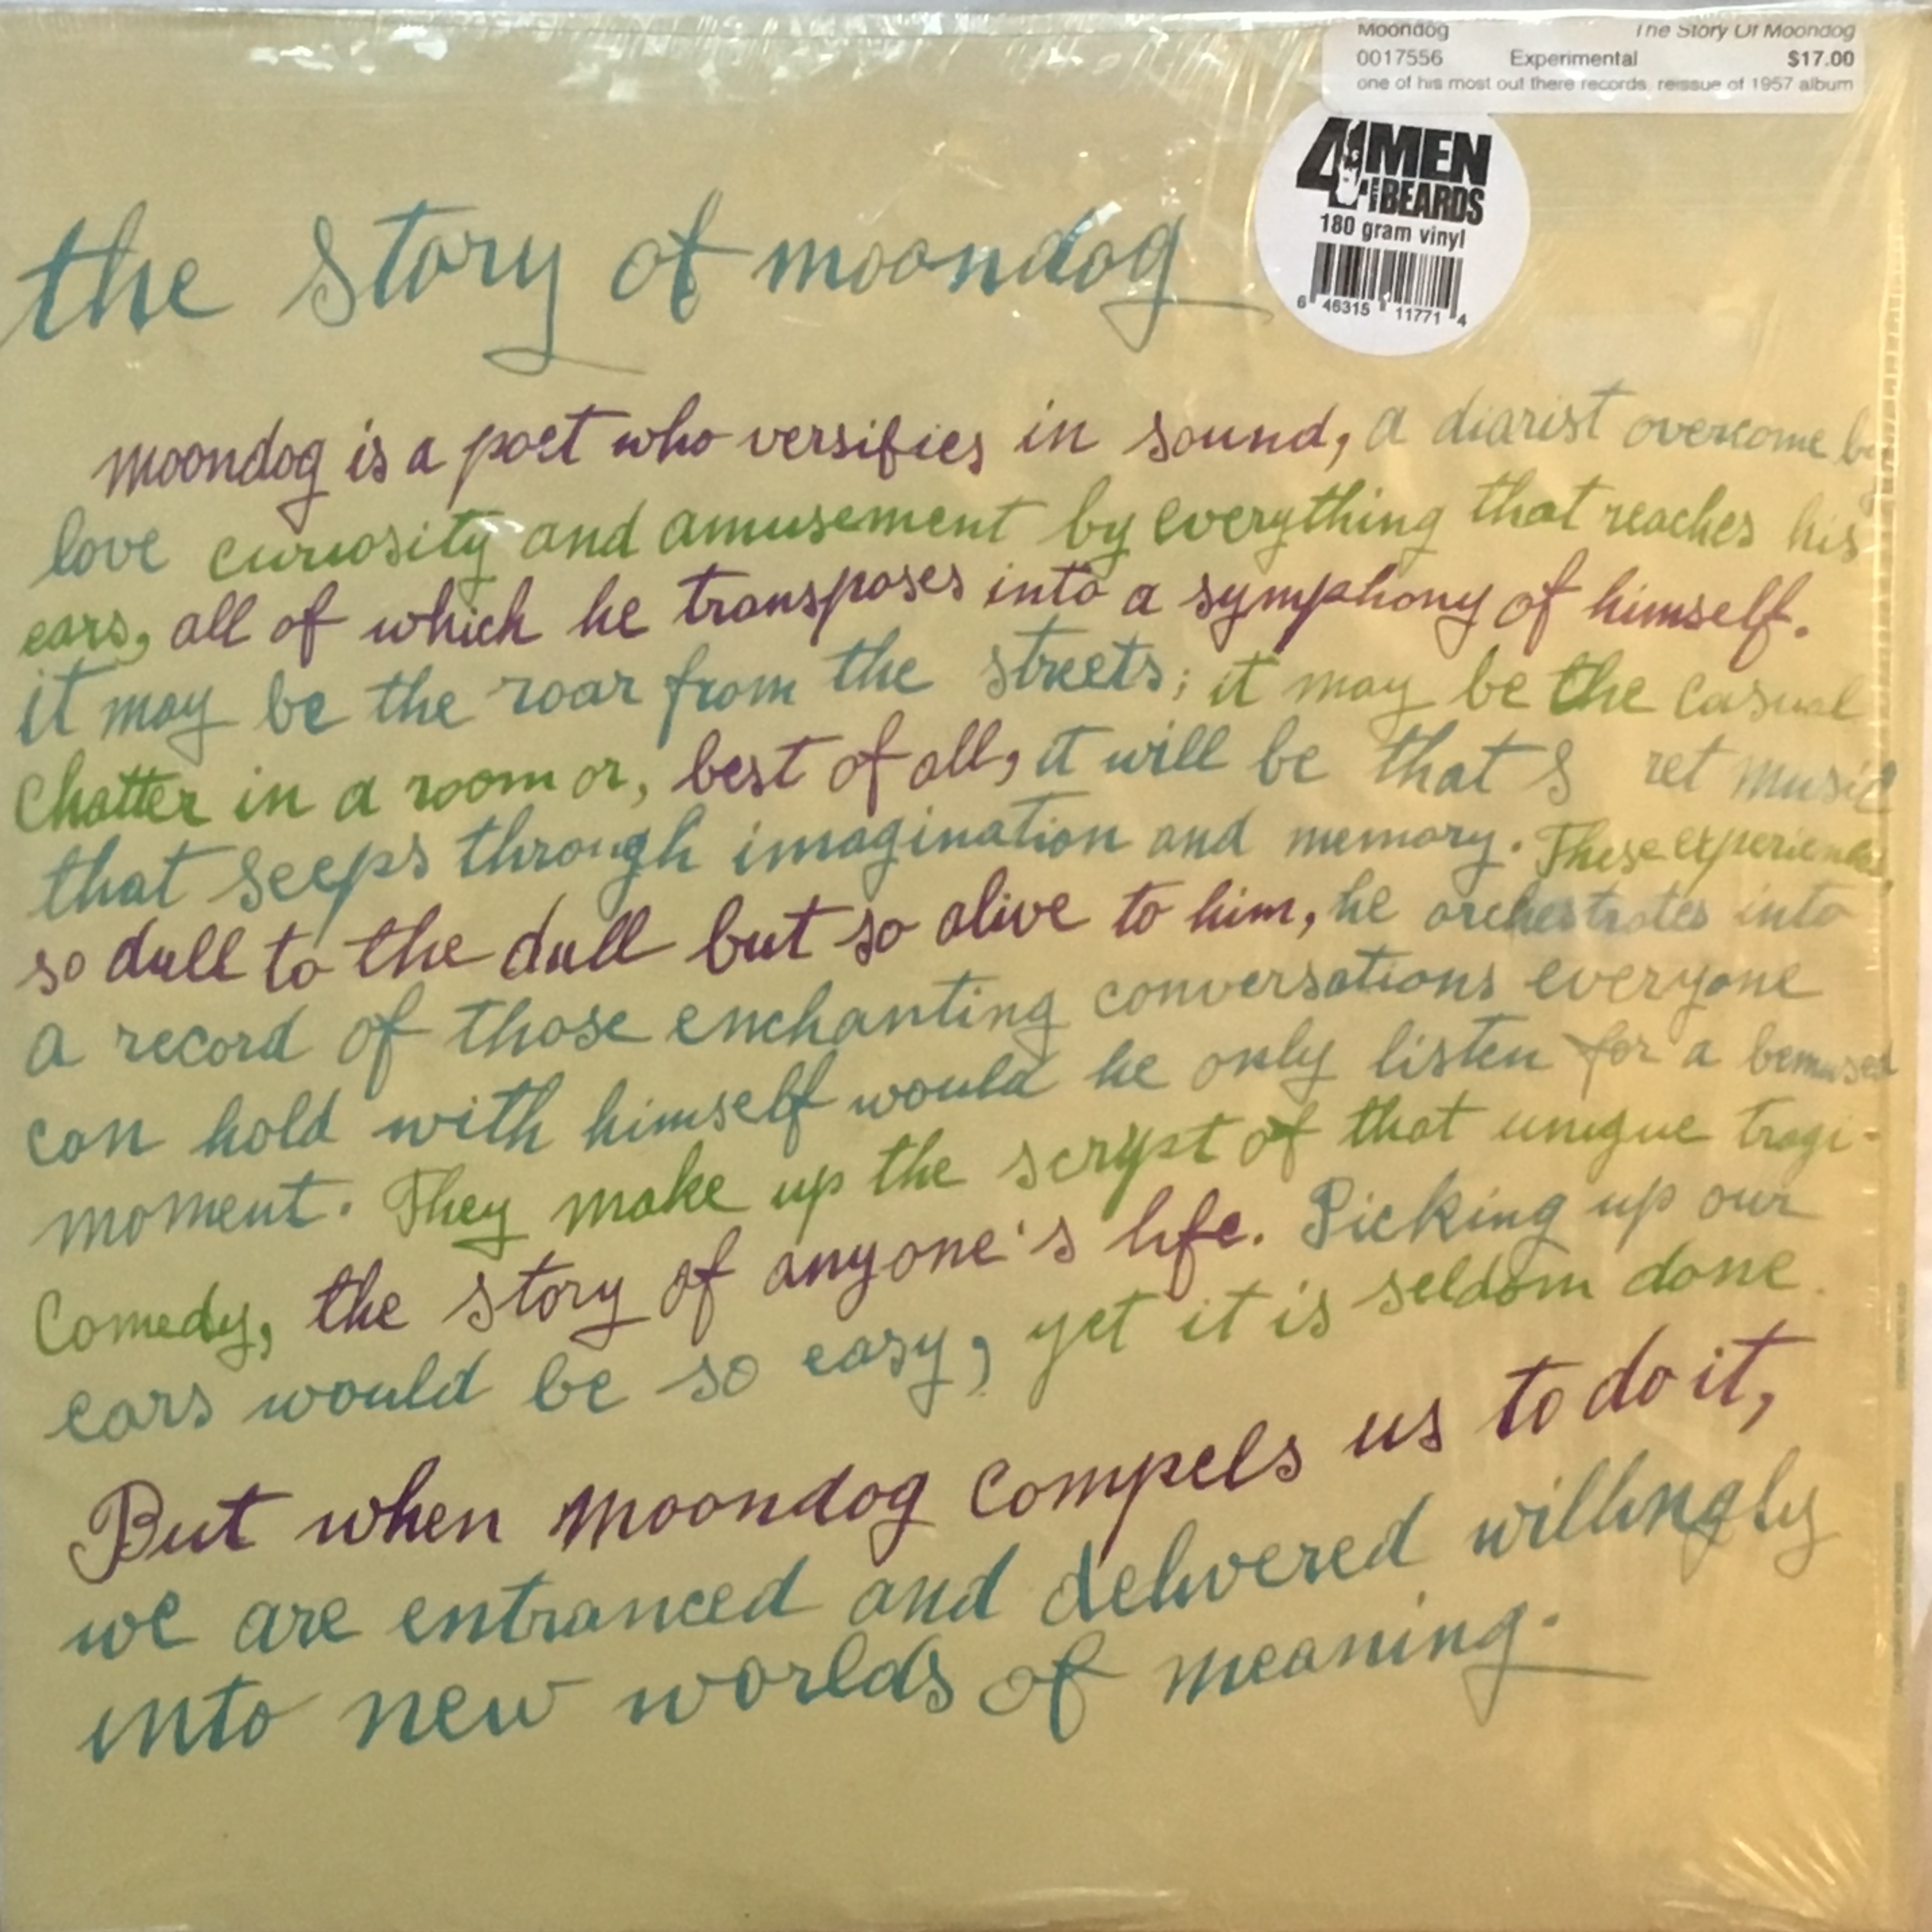 Moondog The Story Of Moondog
0017556 Experimental $17.00
one of his most out there records, reissue of 1957 album
4 MEN WITH BEARDS
180 gram vinyl
6 46315 11771 4
the story of moondog
moondog is a poet who versifies in sound, a diarist overcome by
love curiosity and amusement by everything that reaches his
ears, all of which he transposes into a symphony of himself.
it may be the roar from the streets; it may be the casual
chatter in a room or, best of all, it will be that s ret music
that seeps through imagination and memory. These experiences,
so dull to the dull but so alive to him, he orchestrates into
a record of those enchanting conversations everyone
can hold with himself would he only listen for a bemused
moment. They make up the script of that unique tragi-
Comedy, the story of anyone's life. Picking up our
ears would be so easy, yet it is seldom done.
But when moondog compels us to do it,
we are entranced and delivered willingly
into new worlds of meaning.